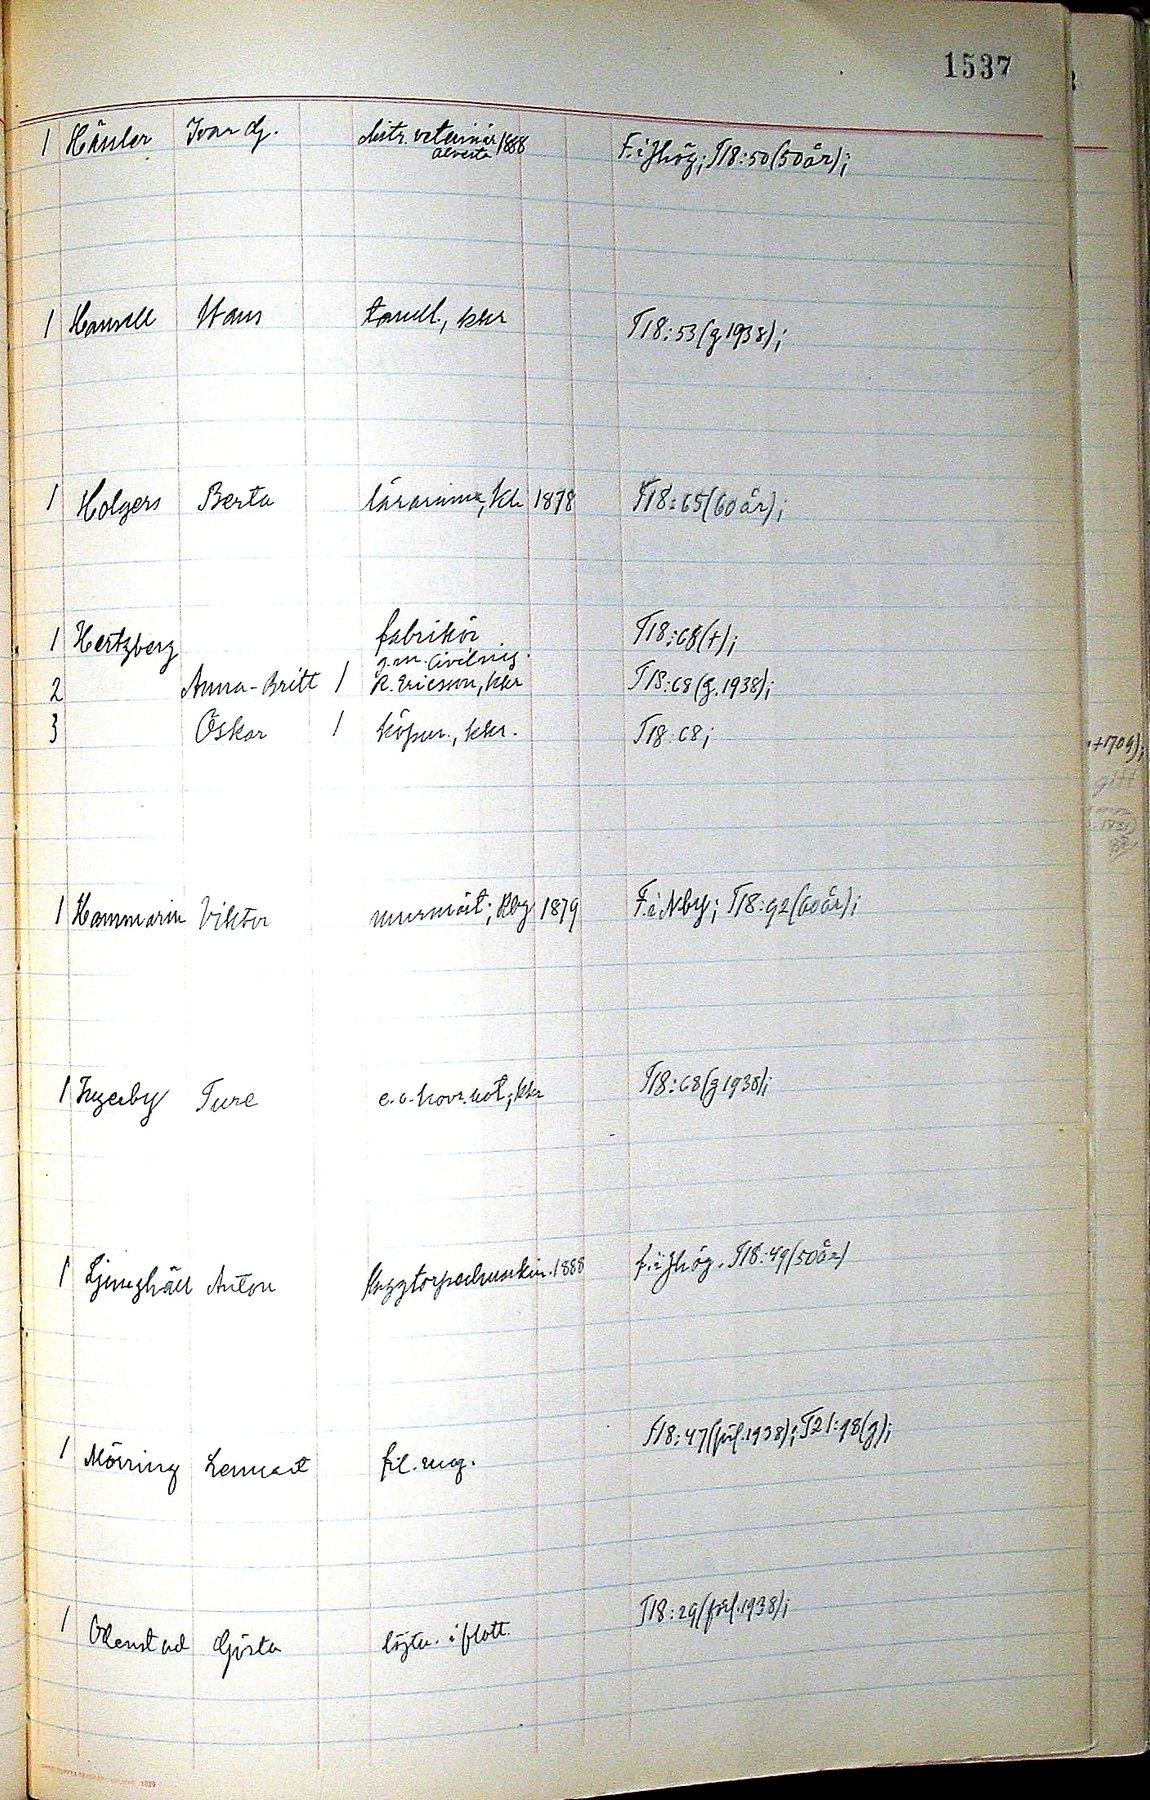 1537
1 Hänler Ivar G. distr. veterinär 1888 F. i Jhög; T18:50 (50 år);
Alvesta
1 Hansell Hans tandl., kkr T18:53 (g 1938);
1 Holgers Berta lärarinna, kkr 1878 T18:65 (60 år);
1 Hertzberg fabrikör T18:68 (+);
g.m. civiling.
2 Anna-Britt 1 R. Ericsson, kkr T18:68 (g. 1938);
3 Oskar 1 köpm., kkr. T18:68;
1 Hammarin Viktor murmäst; Rby 1879 F. i Nby; T18:92 (60 år);
1 Ingerby Ture e.o. hovr.not; kkr T18:68 (g 1938);
1 Ljunghäll Anton 1888 f. i Jhög. T18:49 (50 år)
1 Mörring Lennart fil. mag. T18:47 (förl. 1938); T21:98 (g);
1 Odenstad Gösta löjtn. i flott. T18:29 (förl. 1938);
+1709);
gift